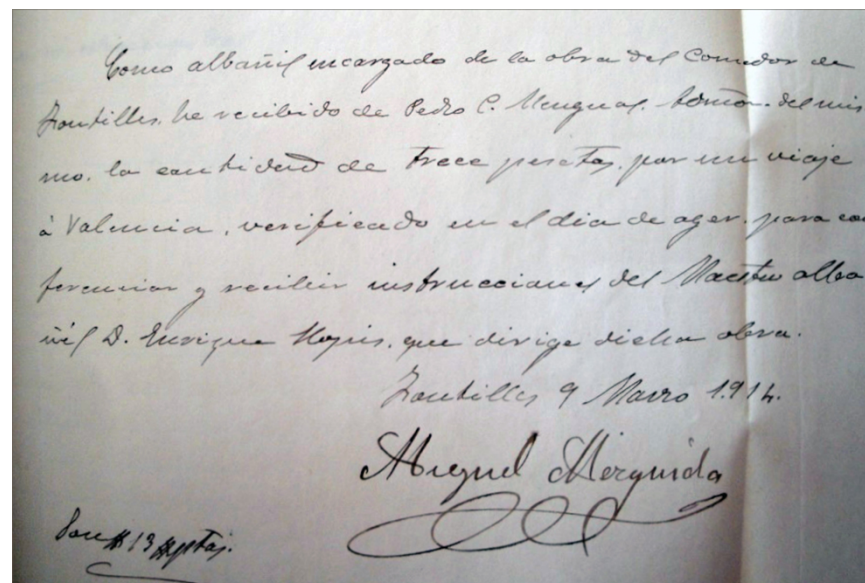 Como albañil encargado de la obra del Comedor de
Fontilles, he recibido de Pedro C. Mengual. Admõn. del mis
mo. la cantidad de trece pesetas, por un viaje
á Valencia, verificado en el dia de ayer, para con
ferenciar y recibir instrucciones del Maestro alba
ñil D. Enrique Llopis, que dirige dicha obra.
Fontilles 9 Marzo 1.914.
Miguel Merquida
Son # 13 # ptas.